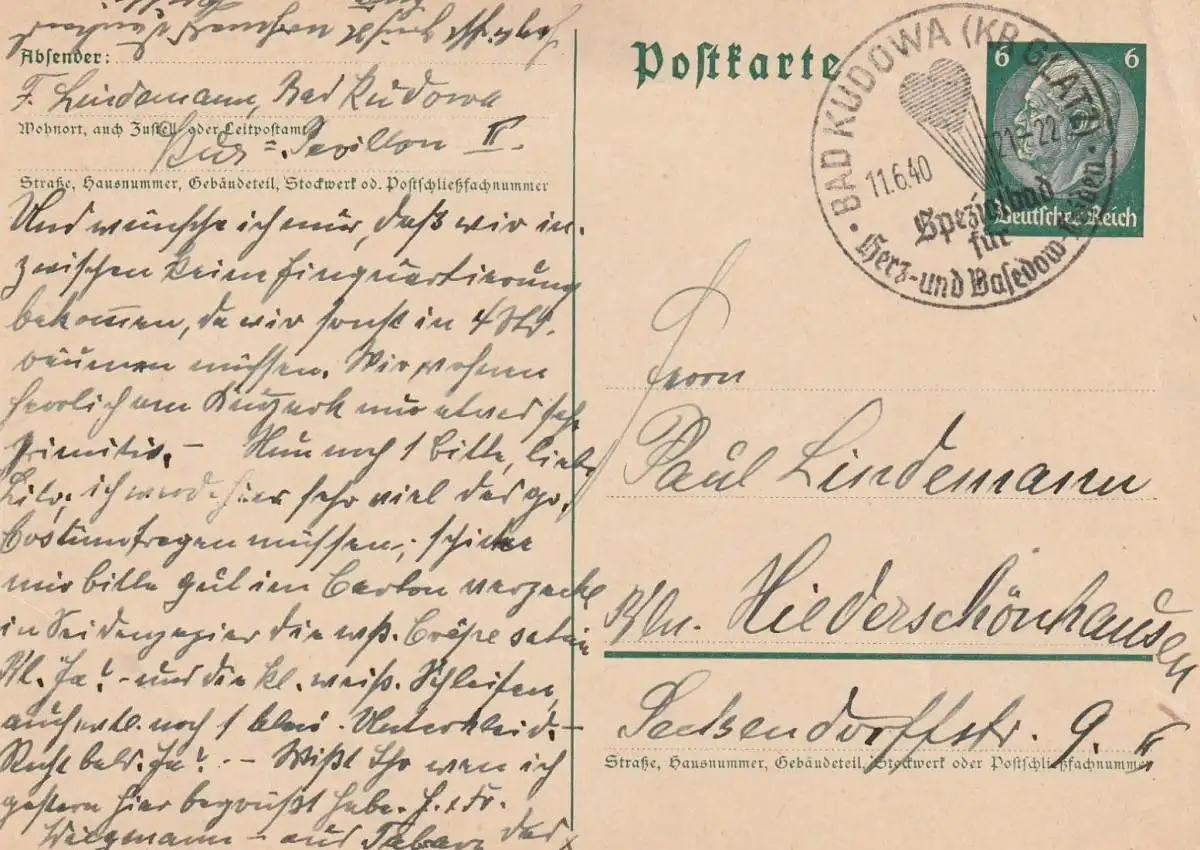 Absender:
F. Lindemann, Bad Kudowa
Wohnort, auch Zustell- oder Leitpostamt
Kur = Pavillon II.
Straße, Hausnummer, Gebäudeteil, Stockwerk od. Postschließfachnummer
Und wünsche ich nur, daß wir in-
zwischen keine Einquartierung
bekommen, da wir sonst in 4 Std.
räumen müssen. Wir wohnen
herrlich am Kurpark nur etwas sehr
primitiv. – Nun noch 1 Bitte, liebe
ich werde hier sehr viel das
Costüm tragen müssen; schicke
mir bitte gut im Carton verpackt
in Seidenpapier die wß. Crêpe satin
Bl. Ja? – und die kl. weiß. Schleifen,
auch evtl. noch 1 Unterkleid. –
Recht bald. Ja? – – Wißt Ihr wen ich
gestern hier begrüßt habe. H. + Fr.
Wiegmann – aus Tabarz
Postkarte
BAD KUDOWA (KR GLATZ)
11.6.40
21-22
Spezialbad
für
Herz- und Basedow-
6 6
Deutsches Reich
Herrn
Paul Lindemann
Bln. Niederschönhausen
9. II
Straße, Hausnummer, Gebäudeteil, Stockwerk oder Postschließfachnummer